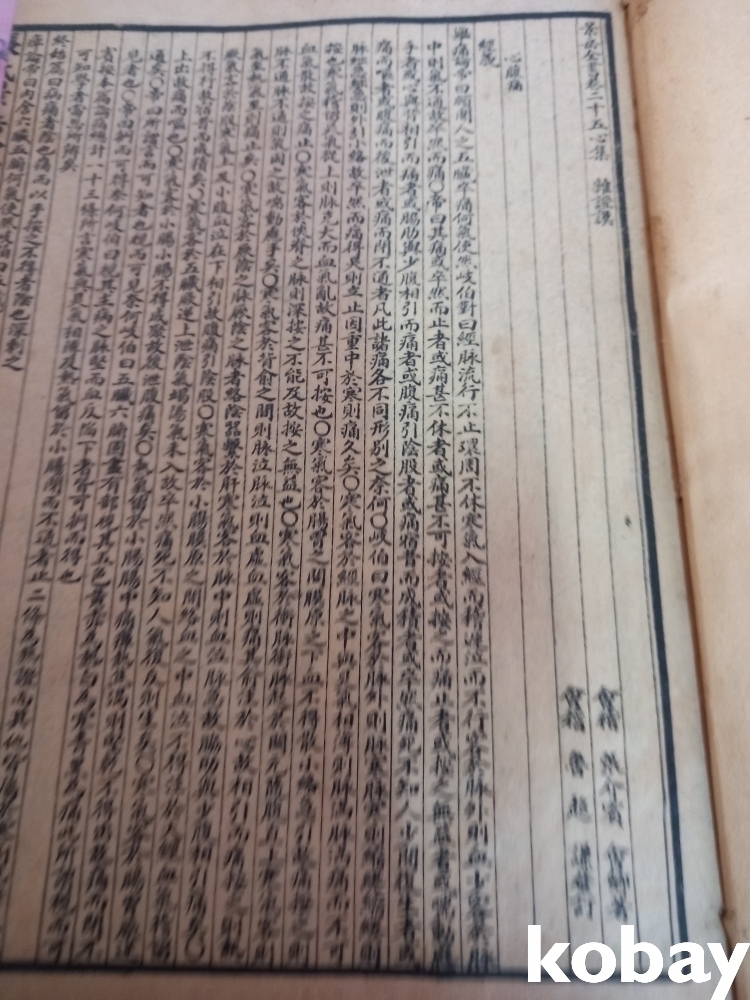 景岳全書卷二十五心集 雜證謨
會稽 張介賓 會卿著
會稽 魯超 謙菴訂
心腹痛
經義
舉痛論帝曰願聞人之五臟卒痛何氣使然岐伯對曰經脉流行不止環周不休寒氣入經而稽遲泣而不行客於脉外則血少客於脉
中則氣不通故卒然而痛〇帝曰其痛或卒然而止者或痛甚不休者或痛甚不可按者或按之而痛止者或按之無益者或喘動應
手者或心與背相引而痛者或脇肋與少腹相引而痛者或腹痛引陰股者或痛宿昔而成積者或卒然痛死不知人少間復生者或
痛而嘔者或腹痛而後泄者或痛而閉不通者凡此諸痛各不同形別之奈何〇岐伯曰寒氣客於脉外則脉寒脉寒則縮踡縮踡則
脉絀急絀急則外引小絡故卒然而痛得炅則立止因重中於寒則痛久矣〇寒氣客於經脉之中與炅氣相薄則脉滿脉滿則痛而不可
按也〇寒氣稽留炅氣從上則脉充大而血氣亂故痛甚不可按也〇寒氣客於腸胃之間膜原之下血不得散小絡急引故痛按之則
血氣散故按之痛止〇寒氣客於俠脊之脉則深按之不能及故按之無益也〇寒氣客於衝脉衝脉起於關元隨腹直上寒氣客則
脉不通脉不通則氣因之故喘動應手矣〇寒氣客於背俞之脉則脉泣脉泣則血虛血虛則痛其俞注於心故相引而痛按之則熱
氣至熱氣至則痛止矣〇寒氣客於厥陰之脉厥陰之脉者絡陰器繫於肝寒氣客於脉中則血泣脉急故脇肋與少腹相引痛矣〇
厥氣客於陰股寒氣上及小腹血泣在下相引故腹痛引陰股〇寒氣客於小腸膜原之間絡血之中血泣不得注於大經血氣稽留
不得行故宿昔而成積矣〇寒氣客於五臟厥逆上泄陰氣竭陽氣未入故卒然痛死不知人氣復反則生矣〇寒氣客於腸胃厥逆
上出故痛而嘔也〇寒氣客於小腸小腸不得成聚故後泄腹痛矣〇熱氣留於小腸腸中痛癉熱焦渴則堅乾不得出故痛而閉不
通矣〇帝曰所謂言而可知者也視而可見奈何岐伯曰五臟六腑固盡有部視其五色黃赤為熱白為寒青黑為痛此所謂視而可
見者也〇帝曰捫而可得奈何岐伯曰視其主病之脉堅而血及陷下者皆可捫而得也
賓按本病論痛計一十三條所言寒氣與炅氣相搏及熱氣留於小腸閉而不通者止二條為熱證而其他皆
可知學者當明辨矣
終始篇曰病痛者陰也痛而以手按之不得者陰也深刺之
kobay